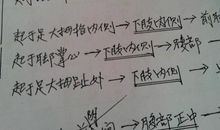 起于足大拇指内侧→下肢内侧→前
起于脚掌心→下肢内侧→腹部→
起于足大拇趾外→下肢内侧→
胸
间→腹部正中→